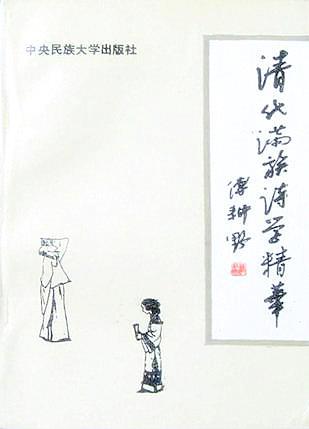 中央民族大学出版社
清代满族诗学精華
傅耕野